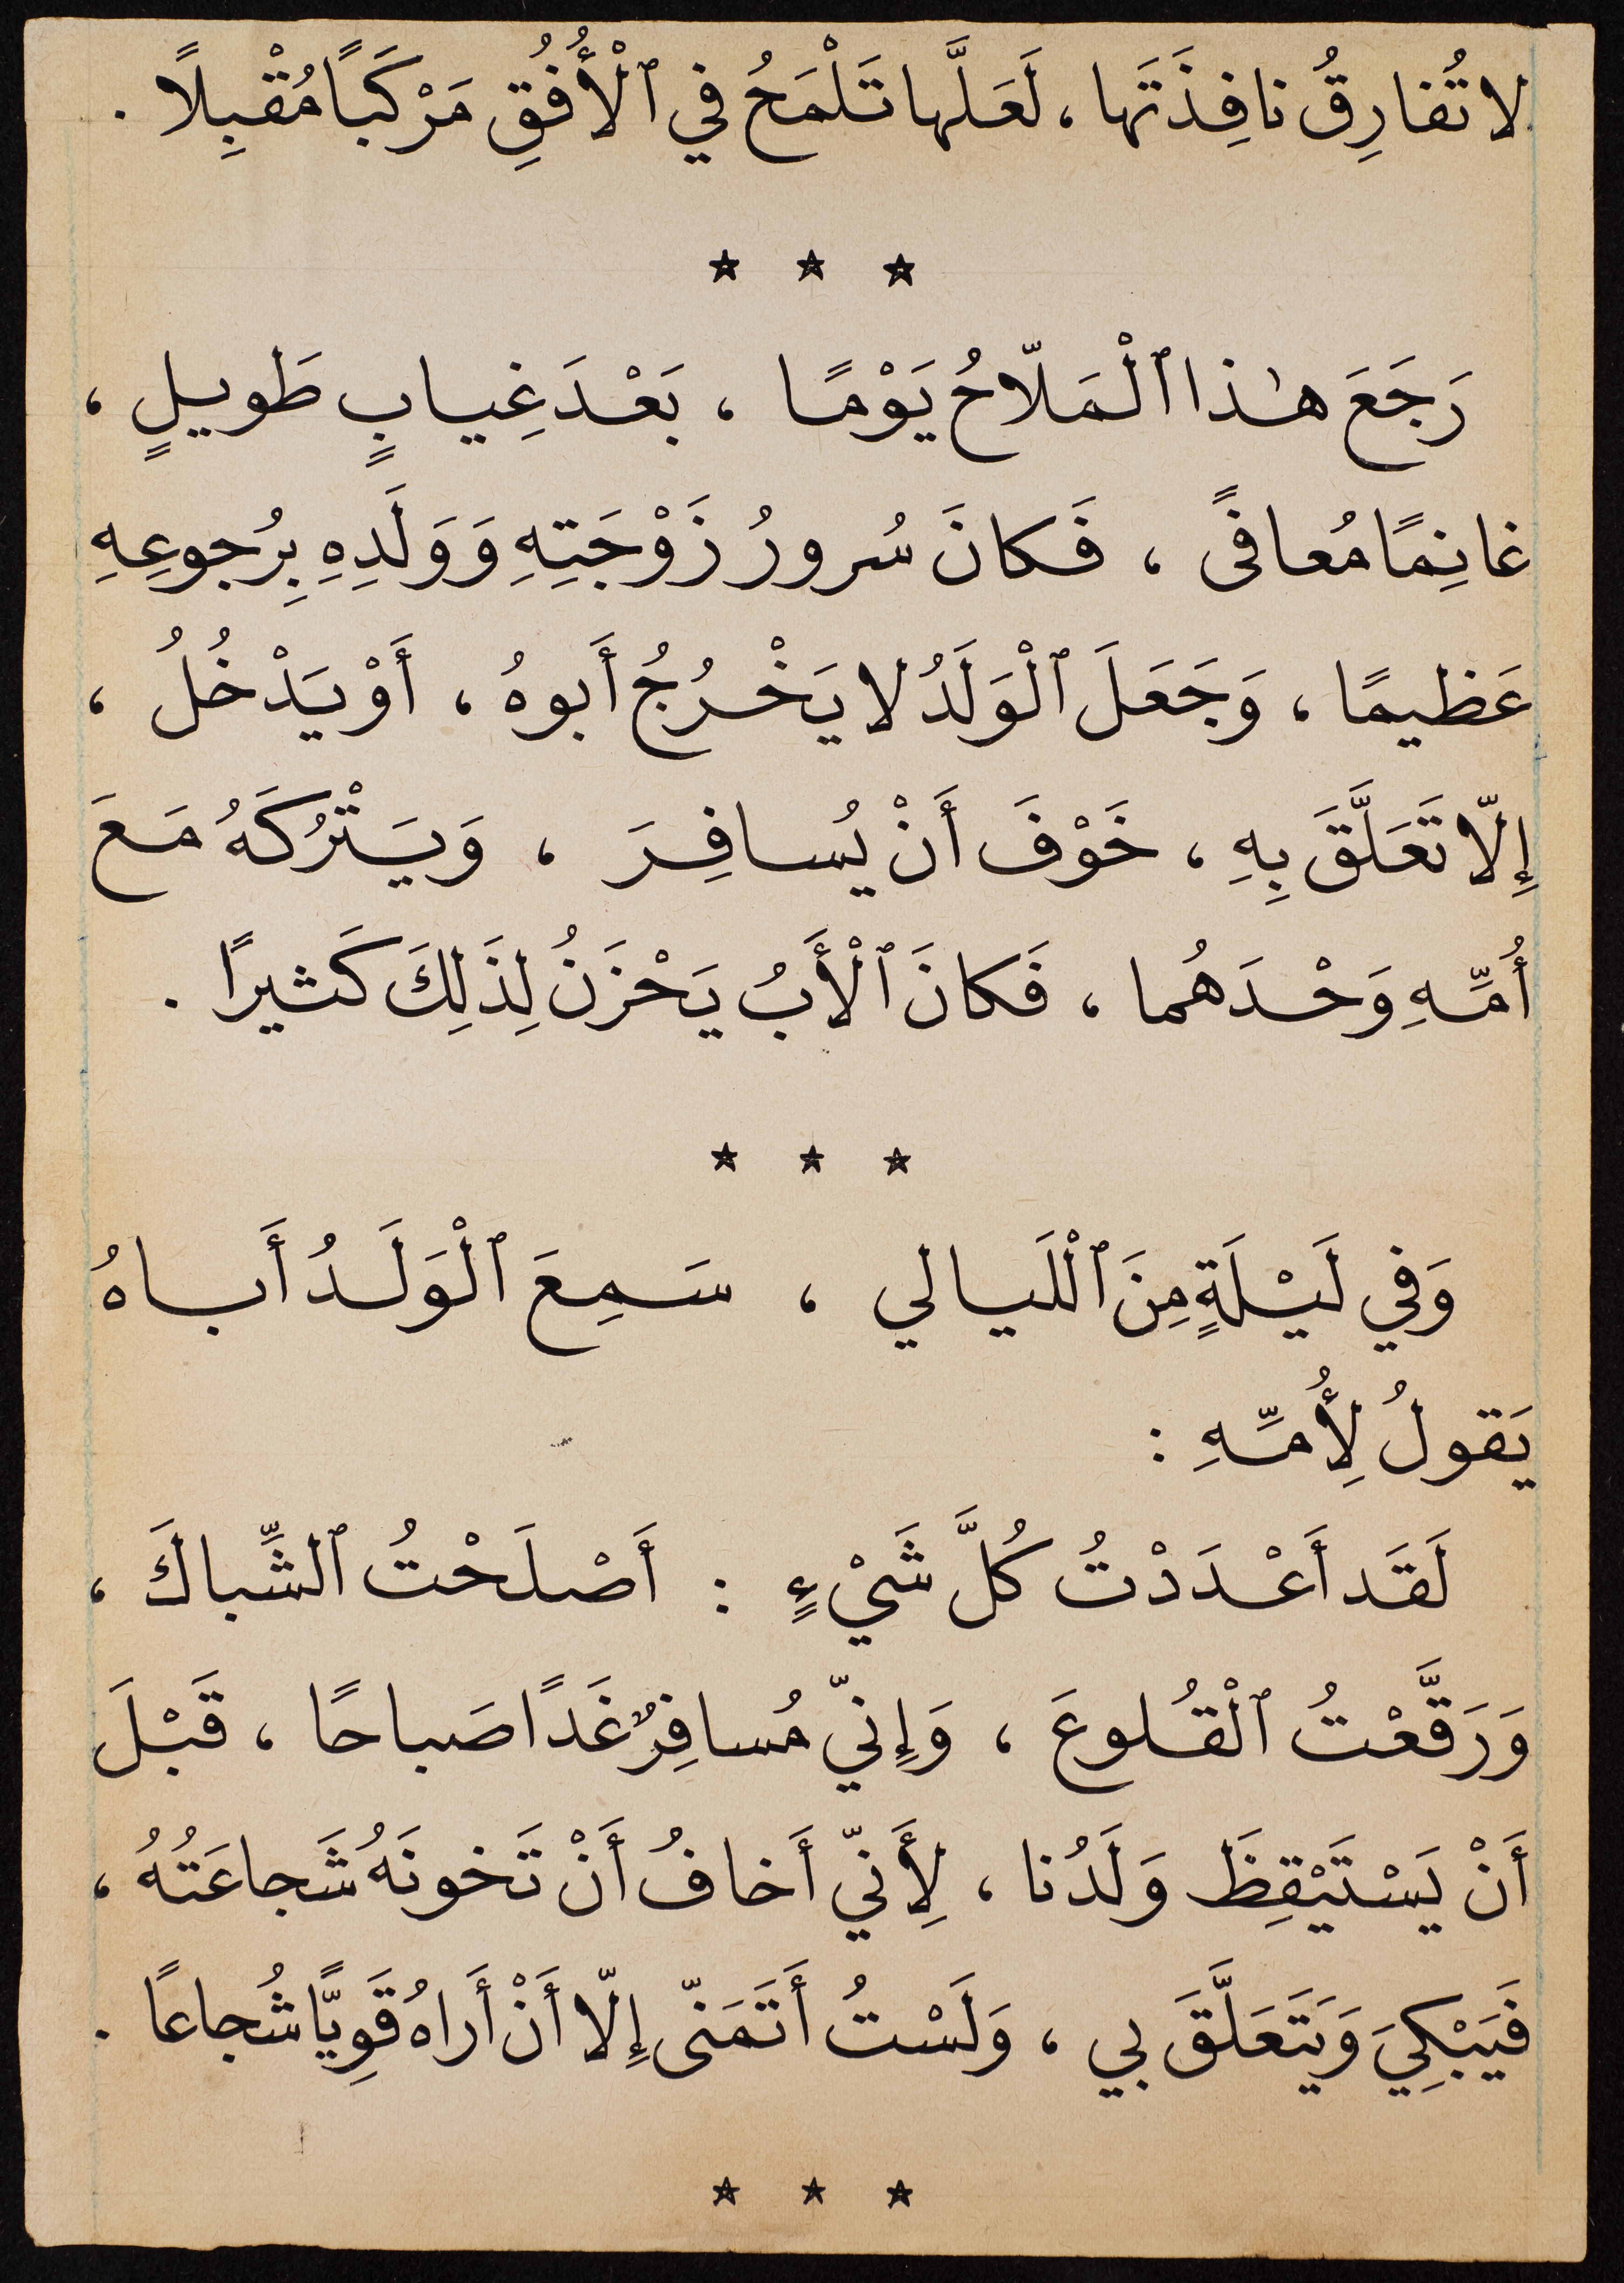 لا تُفارِقُ نافِذَتَها ، لَعَلَّها تَلْمَحُ في ٱلْأُفُقِ مَرْكَبًا مُقْبِلًا .
* * *
رَجَعَ هٰذا ٱلْمَلّاحُ يَوْمًا ، بَعْدَ غِيابٍ طَويلٍ ،
غانِمًا مُعافًى ، فَكانَ سُرورُ زَوْجَتِهِ وَوَلَدِهِ بِرُجوعِهِ
عَظيمًا ، وَجَعَلَ ٱلْوَلَدُ لا يَخْرُجُ أَبوهُ ، أَوْ يَدْخُلُ ،
إِلّا تَعَلَّقَ بِهِ ، خَوْفَ أَنْ يُسافِرَ ، وَيَتْرُكَهُ مَعَ
أُمِّهِ وَحْدَهُما ، فَكانَ ٱلْأَبُ يَحْزَنُ لِذَلِكَ كَثيرًا .
* * *
وَفي لَيْلَةٍ مِنَ ٱلْلَيالي ، سَمِعَ ٱلْوَلَدُ أَباهُ
يَقولُ لِأُمِّهِ :
لَقَد أَعْدَدْتُ كُلَّ شَيْءٍ : أَصْلَحْتُ ٱلشِّباكَ ،
وَرَقَّعْتُ ٱلْقُلوعَ ، وَإِنّي مُسافِرٌ غَدًا صَباحًا ، قَبْلَ
أَنْ يَسْتَيْقِظَ وَلَدُنا ، لِأَنّي أَخافُ أَنْ تَخونَهُ شَجاعَتُهُ ،
فَيَبْكِيَ وَيَتَعَلَّقَ بي ، وَلَسْتُ أَتَمَنّى إِلّا أَنْ أَراهُ قَوِيًّا شُجاعًا .
* * *